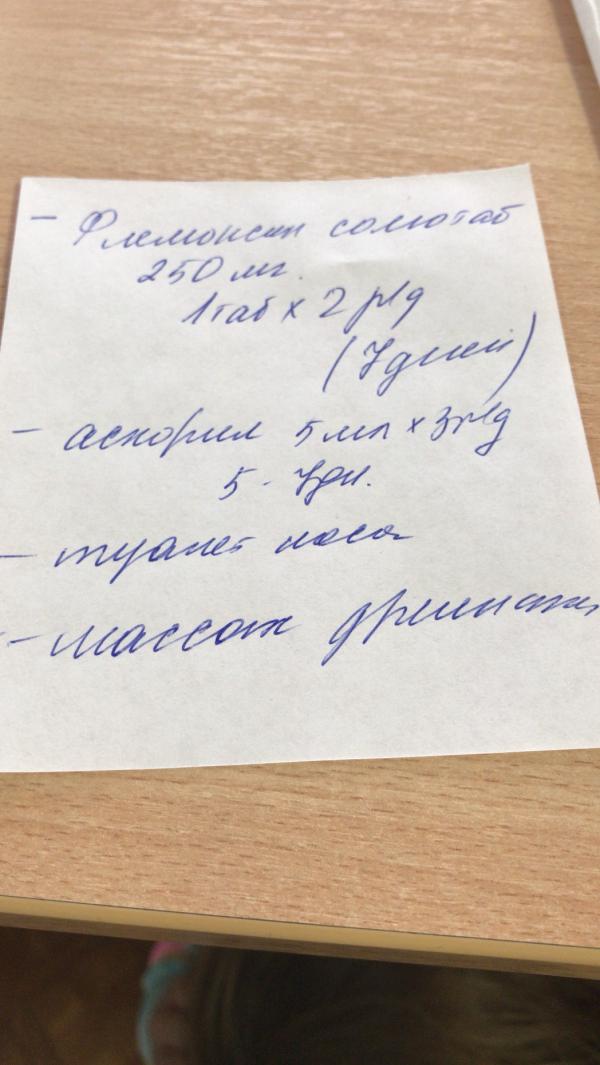 - Флемоксин солютаб
250 мг.
1таб х 2 р/д
(7дней)
- аскорил 5мл х 3р/д
5 - 7дн.
- туалет носа
- массаж